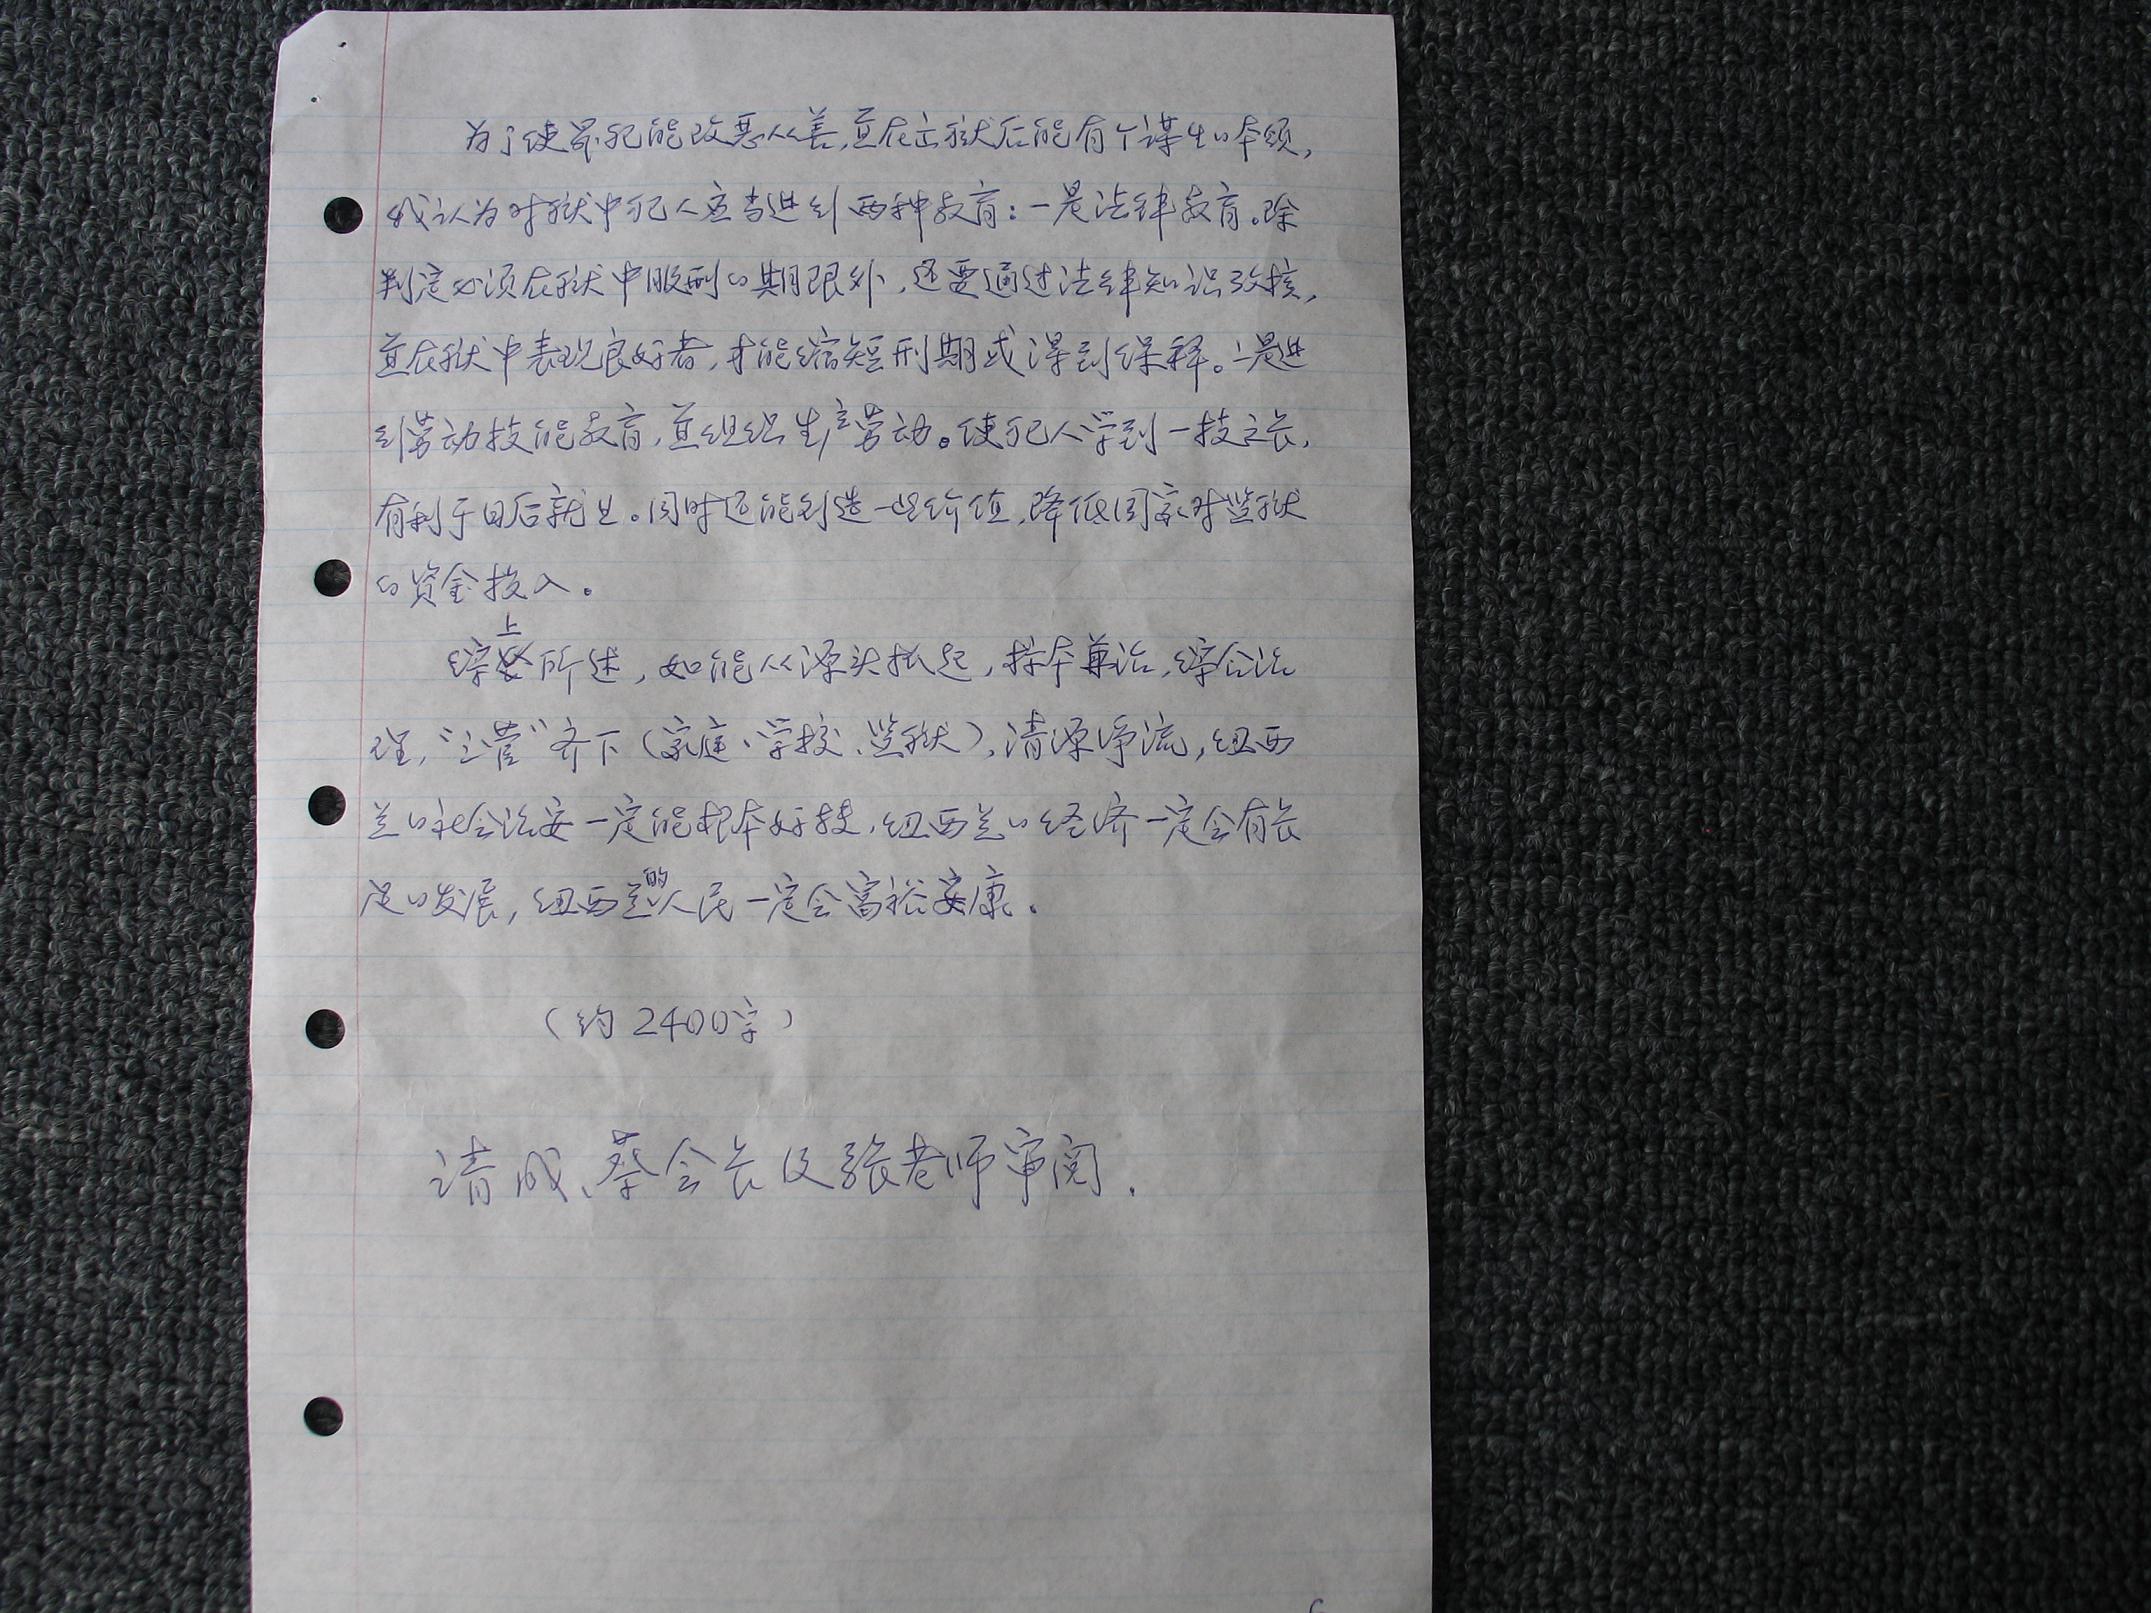 为了使罪犯能改恶从善,并在出狱后能有个谋生的本领,
我认为对狱中犯人应当进行两种教育:一是法律教育。除
判定必须在狱中服刑的期限外,还要通过法律知识考核,
并在狱中表现良好者,才能缩短刑期或得到保释。二是进
行劳动技能教育,并组织生产劳动。使犯人学到一技之长,
有利于日后就业。同时还能创造一些价值,降低国家对监狱
的资金投入。
综上所述,如能从源头抓起,标本兼治,综合治
理,“三管”齐下(家庭、学校、监狱),清源净流,纽西
兰的社会治安一定能根本好转,纽西兰的经济一定会有长
足的发展,纽西兰的人民一定会富裕安康.
(约2400字)
请成、蔡会长及张老师审阅.